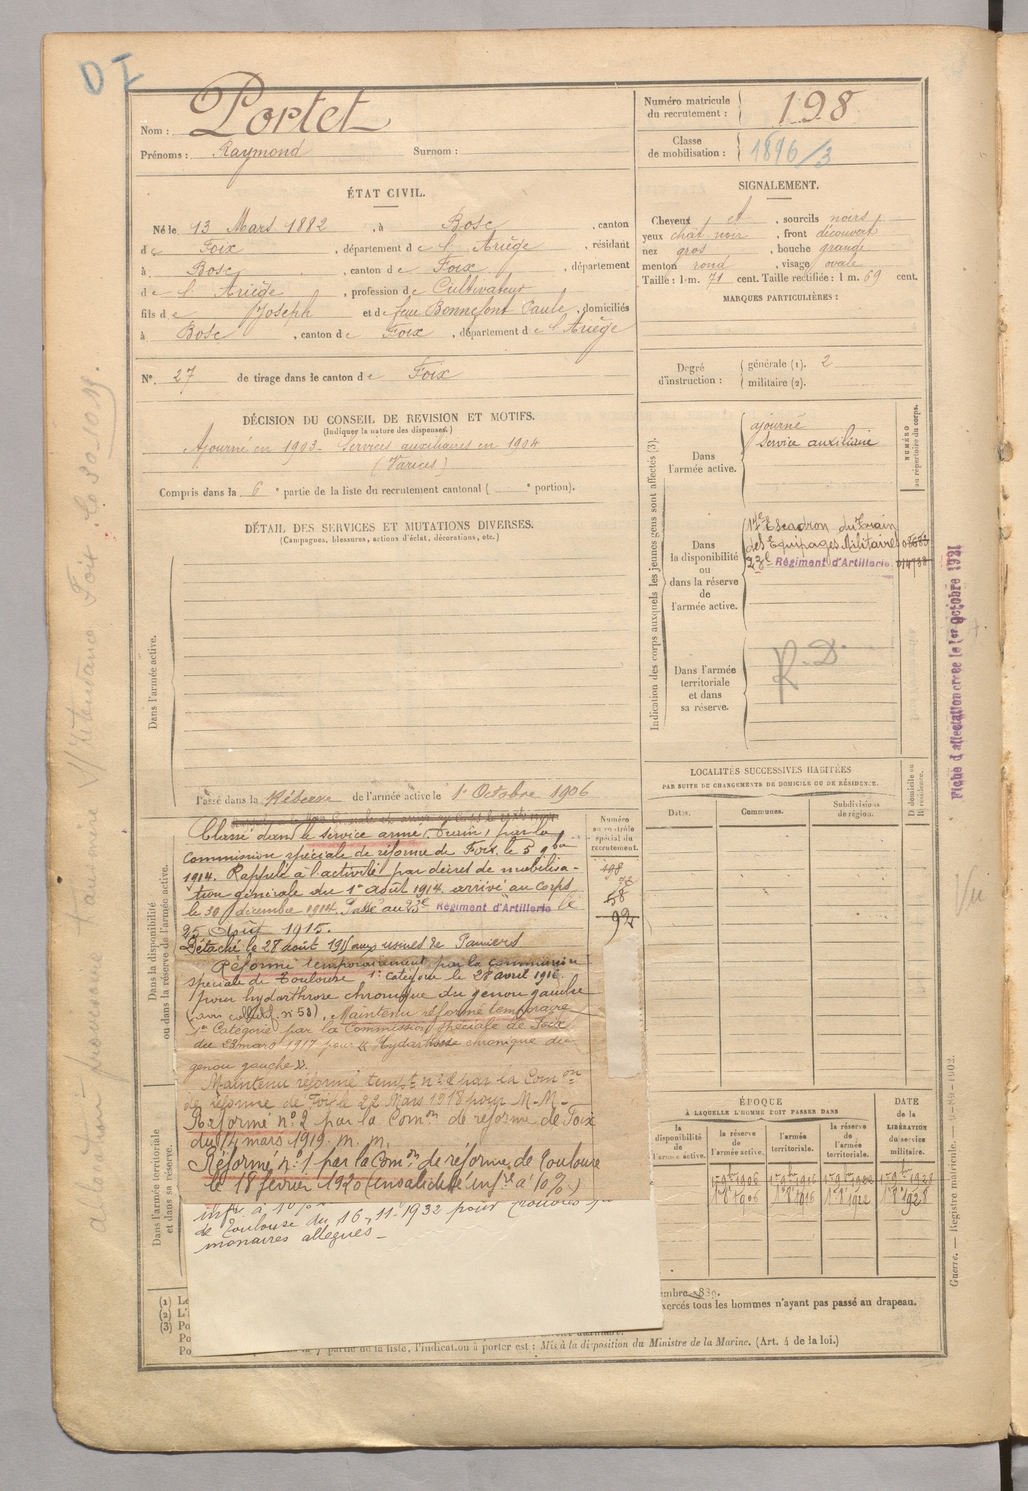 DI
Nom : Portet
Prénoms : Raymond Surnom :
Numéro matricule du recrutement : 198
Classe de mobilisation : 1896/3
ÉTAT CIVIL.
Né le 13 Mars 1882, à Bosc, canton
de Foix, département de l'Ariège, résidant
à Bosc, canton de Foix, département
de l'Ariège, profession de Cultivateur
fils de Joseph et de feue Bonnefont Paule, domiciliés
à Bosc, canton de Foix, département de l'Ariège
N° 27 de tirage dans le canton de Foix
SIGNALEMENT.
Cheveux et, sourcils noirs
yeux chât noir, front découvert
nez gros, bouche grande
menton rond, visage ovale
Taille : 1 m. 71 cent. Taille rectifiée : 1 m. 69 cent.
MARQUES PARTICULIÈRES :
Degré d'instruction :
générale (1). 2
militaire (2).
DÉCISION DU CONSEIL DE REVISION ET MOTIFS.
(Indiquer la nature des dispenses.)
Ajourné en 1903 - Services auxiliaires en 1904
(Varices)
Compris dans la 6e partie de la liste du recrutement cantonal ( e portion).
DÉTAIL DES SERVICES ET MUTATIONS DIVERSES.
(Campagnes, blessures, actions d'éclat, décorations, etc.)
Dans l'armée active.
Passé dans la Réserve de l'armée active le 1er Octobre 1906
Dans la disponibilité ou dans la réserve de l'armée active.
Classé dans le service armé (Train) par la
Commission spéciale de réforme de Foix, le 5 9bre
1914. Rappelé à l'activité par décret de mobilisa-
tion générale du 1er août 1914 arrivé au corps
le 30 décembre 1914. Passé au 23e Régiment d'Artillerie le
25 Août 1915.
Détaché le 27 août 1915 aux usines de Pamiers
Réformé temporairement par la commission
spéciale de Toulouse 1re catégorie le 28 avril 1916
pour hydarthrose chronique du genou gauche
(avis collectif n° 58), Maintenu réformé temporaire
1re Catégorie par la Commission spéciale de Foix
du 23 mars 1917 pour « Hydarthrose chronique du
genou gauche ».
Maintenu réformé tempre n° 2 par la Comon
de réforme de Foix le 22 Mars 1918 pour M-M-
Réformé n° 2 par la Comon de réforme de Foix
du 14 mars 1919. m. m.
Réformé n° 1 par la Comon de réforme de Toulouse
le 18 février 1920 (invalidité infre à 10%)
infr à 10%
de Toulouse du 16-11-1932 pour troubles
monaires allégués -
Dans l'armée territoriale et dans sa réserve.
Numéro au contrôle spécial du recrutement.
198
58
92
Indication des corps auxquels les jeunes gens sont affectés (3).
NUMÉRO au répertoire du corps.
Dans l'armée active.
ajourné
Service auxiliaire
Dans la disponibilité ou dans la réserve de l'armée active.
17e Escadron du Train
des Equipages Militaires
23e Régiment d'Artillerie
Dans l'armée territoriale et dans sa réserve.
R.D.
LOCALITÉS SUCCESSIVES HABITÉES
PAR SUITE DE CHANGEMENTS DE DOMICILE OU DE RÉSIDENCE.
Dates. Communes. Subdivisions de région. D domicile ou R résidence.
ÉPOQUE
À LAQUELLE L'HOMME DOIT PASSER DANS
la disponibilité de l'armée active.
la réserve de l'armée active.
l'armée territoriale.
la réserve de l'armée territoriale.
DATE de la LIBÉRATION du service militaire.
1er 8bre 1906 1er 8bre 1916 1er 8bre 1922 1er 8bre 1928
exercés tous les hommes n'ayant pas passé au drapeau.
partie de la liste, l'indication à porter est : Mis à la disposition du Ministre de la Marine. (Art. 4 de la loi.)
(1) Le
(2) L'I
(3) Po
Po
Po
allocation provisoire
Foix le 30.10.19.
Fiche d'affectation créée le 1er octobre 1921
Vu
Guerre. — Registre matricule.